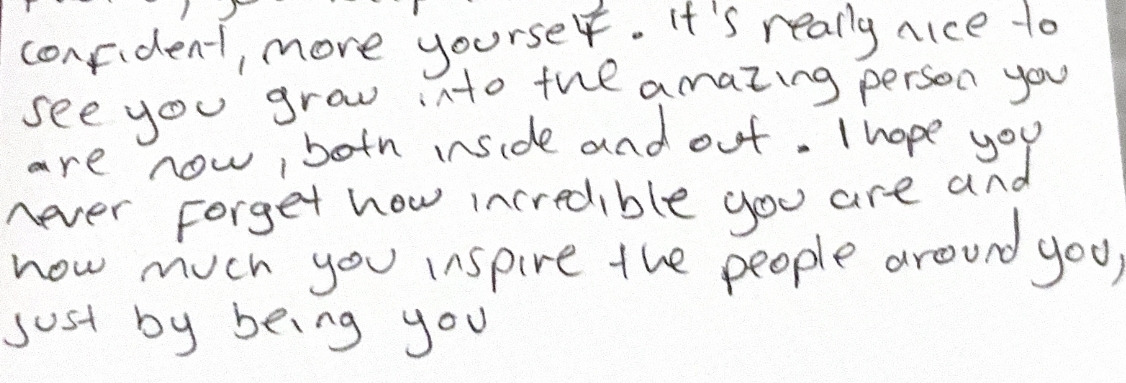 confident, more yourself. It's really nice to
see you grow into the amazing person you
are now, both inside and out. I hope you
never forget how incredible you are and
how much you inspire the people around you,
just by being you